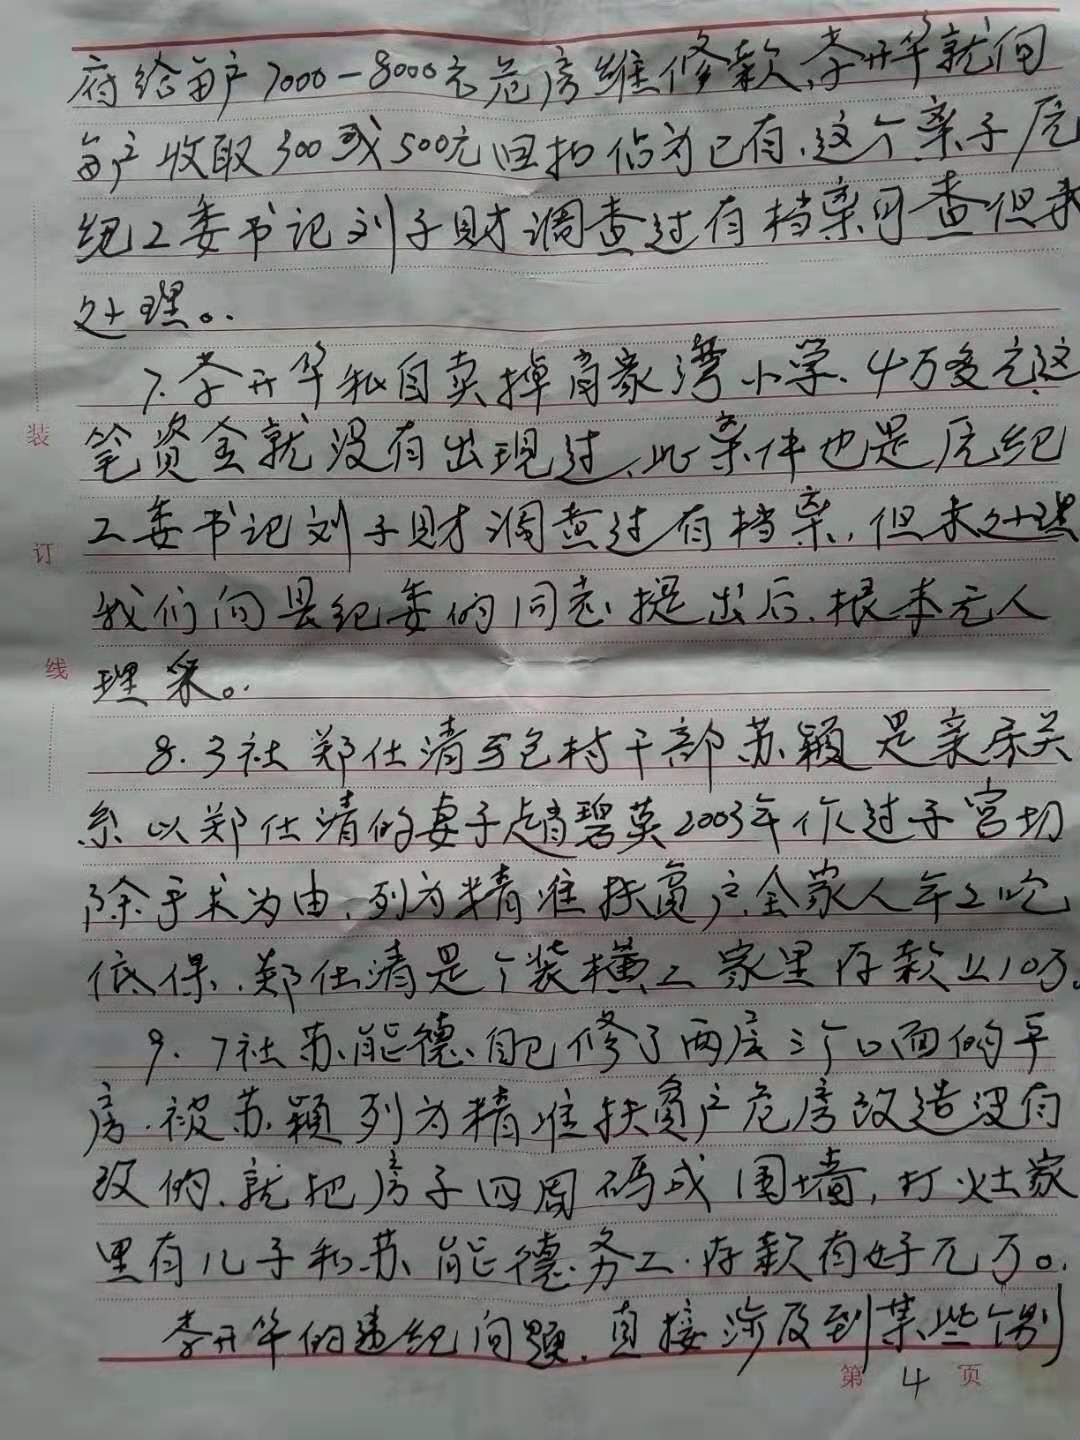 府给每户7000-8000元危房维修款,李开华就向
每户收取300或500元回扣佔为己有、这个案子原
纪工委书记刘子财调查过有档案可查但未
处理。
7.李开华私自卖掉肖家湾小学、4万多元这
笔资金就没有出现过、此案件也是原纪
工委书记刘子财调查过有档案,但未处理
我们向县纪委的同志提出后、根本无人
理采。
8.3社郑仕清与包村干部苏颖是亲戚关
系以郑仕清的妻子赵碧英2003年作过子宫切
除手术为由、列为精准扶贫户、全家人年年吃
低保、郑仕清是个装横工家里存款上10万。
9.7社苏能德、自己修了两层三个口面的平
房、被苏颖列为精准扶贫户危房改造没有
改的、就把房子四周码成围墙,打灶家
里有儿子和苏能德务工、存款有好几万。
李开华的违纪问题、直接涉及到某些个别
装
订
线
第 4 页